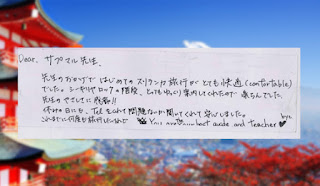 Dear. サプマル先生.
先生のおかげで はじめての スリランカ旅行が とても快適 (comfortable)
でした。シーギリヤロックの階段、とてもゆっくり案内してくれたので 楽ちんでした。
先生のやさしさに感激!!
休みの日にも、Telをくれて問題ないか聞いてくれて安心しました。
これまでに何度も旅行した中で You are best guide and teacher